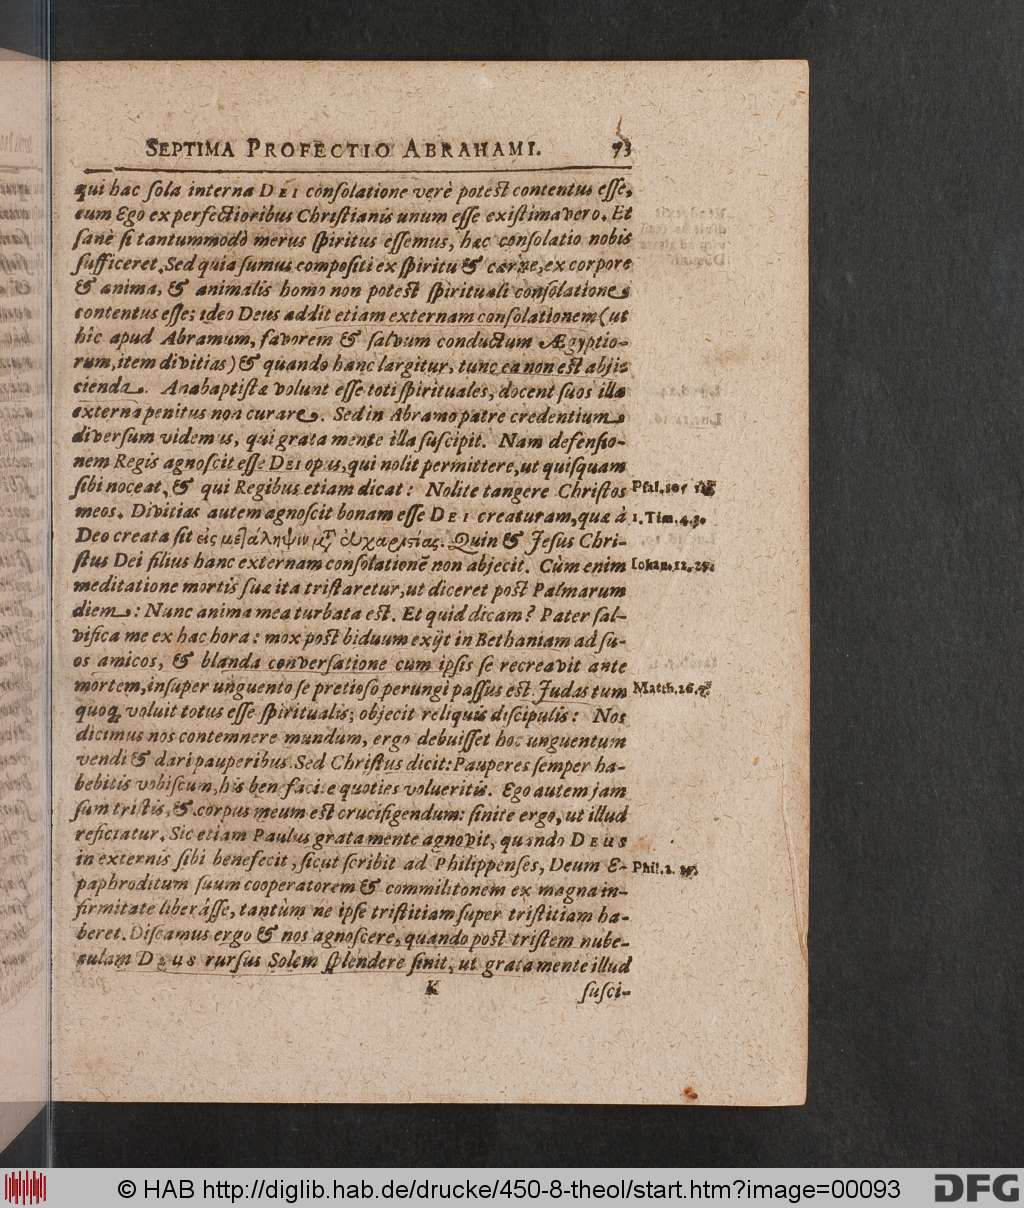 SEPTIMA PROFECTIO ABRAHAMI. 73
qui hac sola interna DEI consolatione verè potest contentus esse,
eum Ego ex perfectioribus Christianis unum esse existimavero. Et
sanè si tantummodò merus spiritus essemus, hæc consolatio nobis
sufficeret. Sed quia sumus compositi ex spiritu & carne, ex corpore
& anima, & animalis homo non potest spirituali consolatione
contentus esse; ideo Deus addit etiam externam consolationem (ut
hîc apud Abramum, favorem & salvum conductum Ægyptio-
rum, item divitias) & quando hanc largitur, tunc ea non est abjic
cienda. Anabaptistæ volunt esse toti spirituales, docent suos illa
externa penitus non curare. Sed in Abramo patre credentium
diversum videmus, qui grata mente illa suscipit. Nam defensio-
nem Regis agnoscit esse DEI opus, qui nolit permittere, ut quisquam
sibi noceat, & qui Regibus etiam dicat: Nolite tangere Christos
Psal. 105
meos. Divitias autem agnoscit bonam esse DEI creaturam, quæ à
1. Tim. 4. 3.
Deo creata sit εἰς μετάληψιν μτ̃ ευχαριστίας. Quin & Jesus Chri-
stus Dei filius hanc externam consolationē non abjecit. Cùm enim
Iohan. 12. 27.
meditatione mortis suæ ita tristaretur, ut diceret post Palmarum
diem: Nunc anima mea turbata est. Et quid dicam? Pater sal-
vifica me ex hac hora: mox post biduum exijt in Bethaniam ad su-
os amicos, & blanda conversatione cum ipsis se recreavit ante
mortem, insuper unguento se pretioso perungi passus est. Judas tum
Matth. 26.
quoq; voluit totus esse spiritualis, objecit reliquis discipulis: Nos
dicimus nos contemnere mundum, ergo debuisset hoc unguentum
vendi & dari pauperibus. Sed Christus dicit: Pauperes semper ha-
bebitis vobiscum, his benefacite quoties volueritis. Ego autem jam
sum tristis, & corpus meum est crucifigendum: sinite ergo, ut illud
reficiatur. Sic etiam Paulus grata mente agnovit, quando DEUS
in externis sibi benefecit, sicut scribit ad Philippenses, Deum E-
Phil. 2.
paphroditum suum cooperatorem & commilitonem ex magna in-
firmitate liberâsse, tantùm ne ipse tristitiam super tristitiam ha-
beret. Discamus ergo & nos agnoscere, quando post tristem nube-
culam DEUS rursus Solem splendere sinit, ut grata mente illud
K susci-
© HAB http://diglib.hab.de/drucke/450-8-theol/start.htm?image=00093
DFG